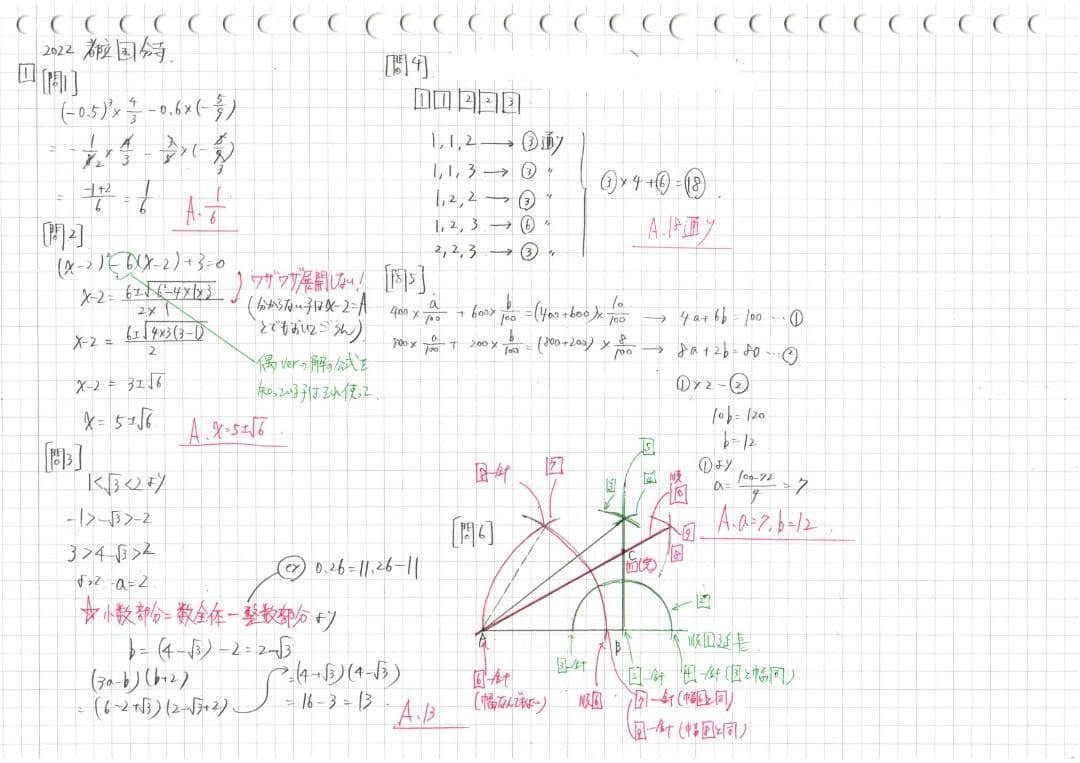 2022 都立国分寺.
1
[問1]
(-0.5)³×4/3-0.6×(-5/9)
= -1/8₂×4/3-3/5×(-5/9₃)
= (-1+2)/6 = 1/6
A. 1/6
[問2]
(x-2)²-6(x-2)+3=0
x-2= (6±√(6²-4×1×3))/(2×1)
x-2= (6±√(4×3(3-1)))/2
x-2 = 3±√6
x= 5±√6
A. x=5±√6
ワザワザ展開しない!
(分からない子はx-2=A
とでもおいてごらん)
偶verの解の公式を
知ってる子はそれ使って
[問3]
1<√3<2より
-1>-√3>-2
3>4-√3>2
よって a=2
☆小数部分=数全体-整数部分より
ex 0.26=11.26-11
b=(4-√3)-2=2-√3
(3a-b)(b+2)
=(6-2+√3)(2-√3+2)
=(4+√3)(4-√3)
=16-3=13
A. 13
[問4]
1 1 2 2 3
1,1,2 → ③通り
1,1,3 → ③ 〃
1,2,2 → ③ 〃
1,2,3 → ⑥ 〃
2,2,3 → ③ 〃
③×4+⑥=⑱.
A. 18通り
[問5]
400×a/100+600×b/100=(400+600)×10/100 → 4a+6b=100 …①
800×a/100+200×b/100=(800+200)×8/100 → 8a+2b=80 …②
①×2-②
10b=120
b=12
①より
a=(100-72)/4=7
A. a=7, b=12
[問6]
8-針
7
5
3
4
順
10
9
8
C
11(完)
2
A
B
順1延長
3-針
2-針
4-針(3と幅同)
6-針
(幅なんでもよい)
順6
7-針(幅6と同)
9-針(幅8と同)